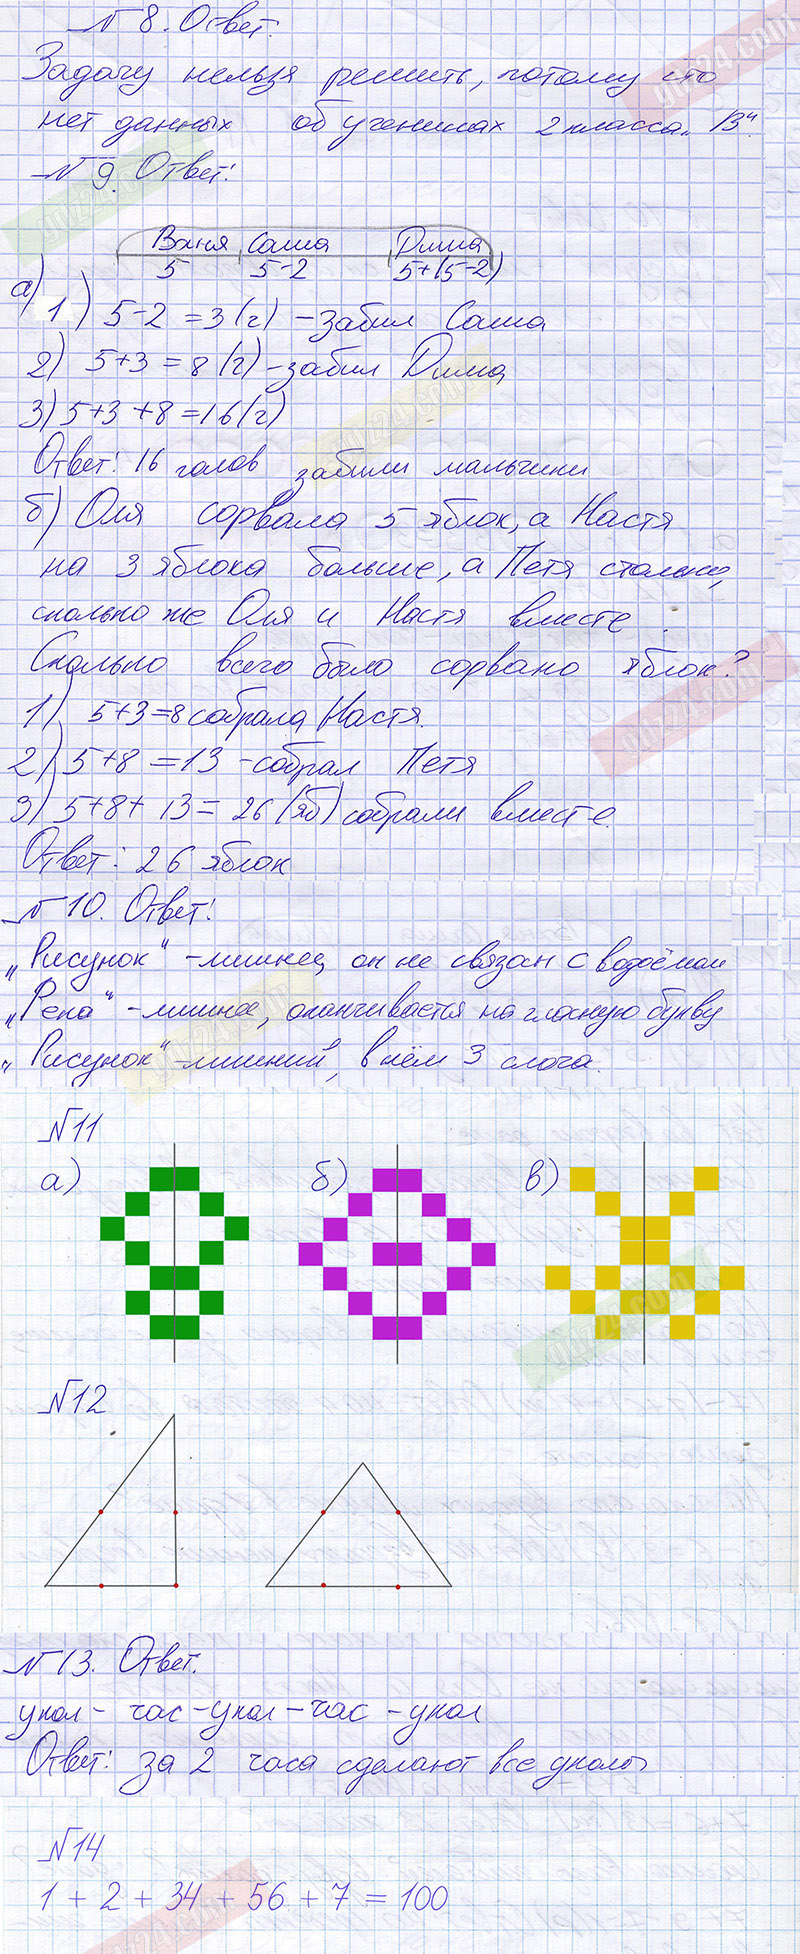 № 8. Ответ.
Задачу нельзя решить, потому что
нет данных об учениках 2 класса „В“.
№ 9. Ответ:
Ваня Саша Дима
5 5-2 5+(5-2)
а)
1) 5-2=3(г) – забил Саша
2) 5+3=8(г) – забил Дима
3) 5+3+8=16(г)
Ответ: 16 голов забили мальчики
б) Оля сорвала 5 яблок, а Настя
на 3 яблока больше, а Петя столько,
сколько же Оля и Настя вместе.
Сколько всего было сорвано яблок?
1) 5+3=8 собрала Настя.
2) 5+8=13 – собрал Петя
3) 5+8+13=26(яб) собрали вместе.
Ответ: 26 яблок
№ 10. Ответ:
„Рисунок“ – лишнец, он не связан с водоёмом
„Река“ – лишнее, оканчивается на гласную букву
„Рисунок“ – лишний, в нём 3 слога.
№11
а) б) в)
№12
№ 13. Ответ.
укол – час – укол – час – укол
Ответ: за 2 часа сделают все уколы
№14
1 + 2 + 34 + 56 + 7 = 100
gdz24.com
gdz24.com
gdz24.com
gdz24.com
gdz24.com
gdz24.com
gdz24.com